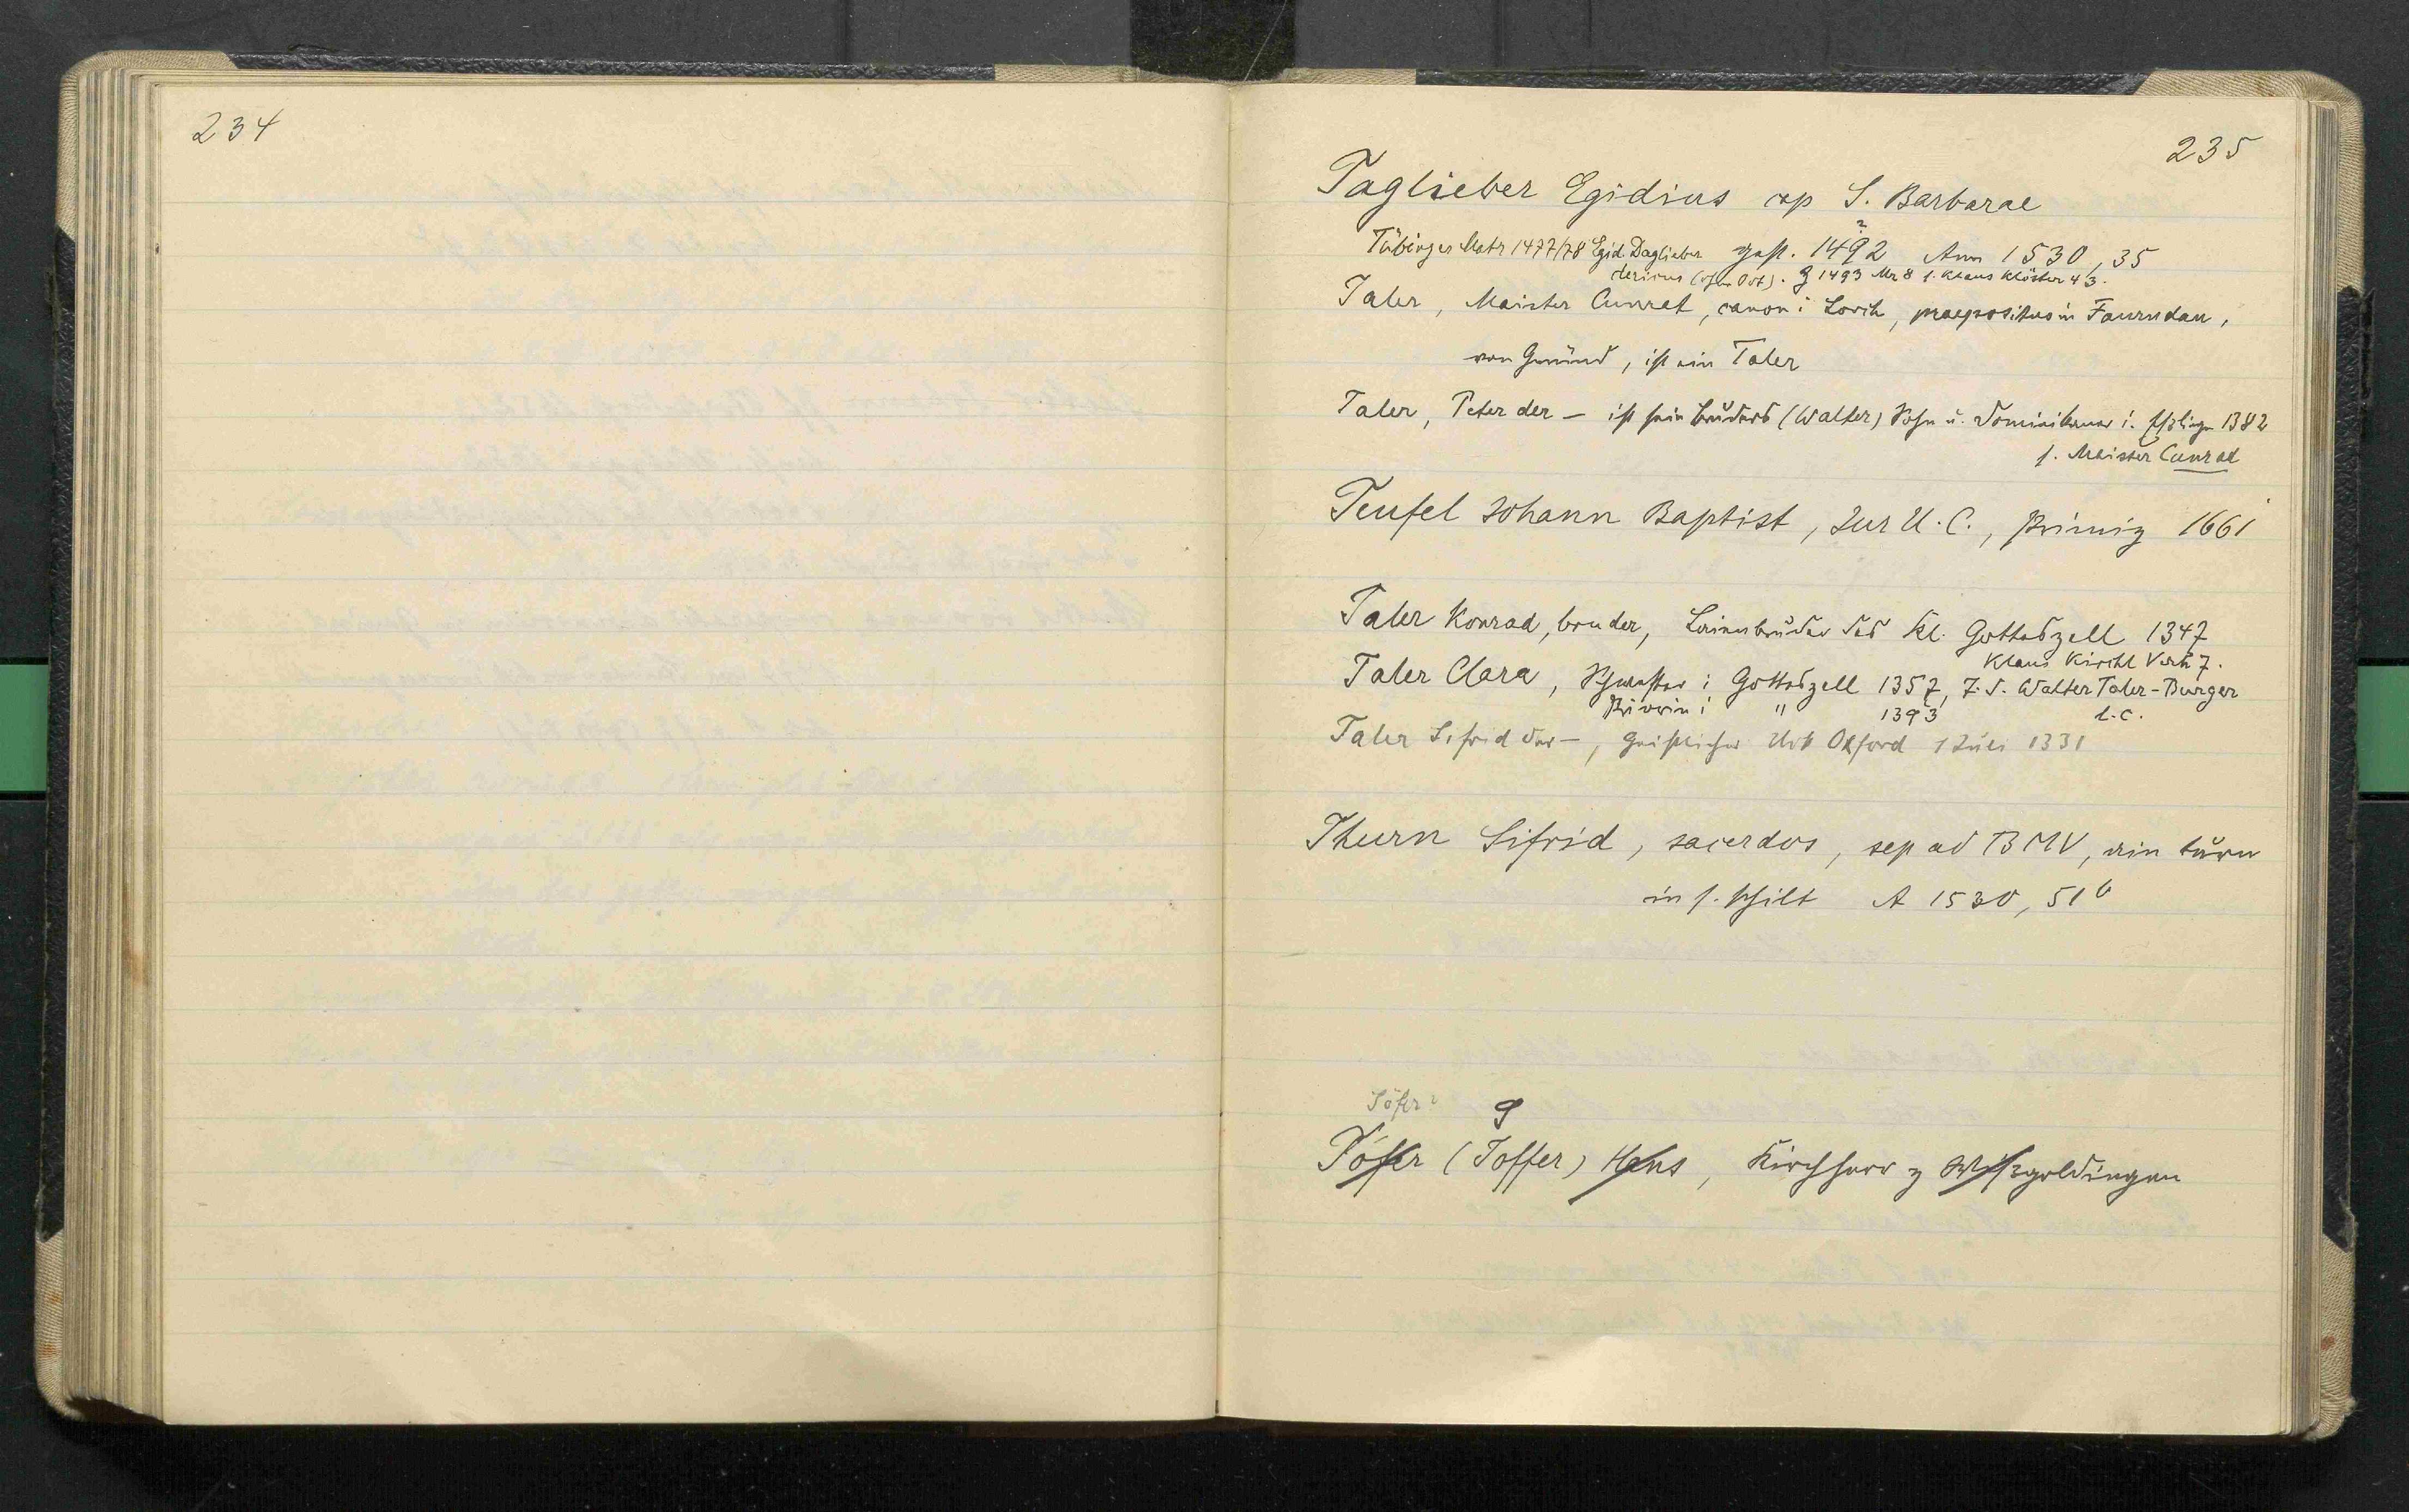 234
235
Taglieber Egidius cap S. Barbarae
Tübinger Matr 1477/78 Egid. Daglieber gest. 1492 ? Ann 1530, 35
clericus (ohne Ort). G 1493 Nr 8 s. Klaus Klöster 43.
Taler, Maister Cunrat, canon i Lorch, praepositus in Faurndau,
von Gmünd, ist ein Taler
Taler, Peter der — ist sein Bruders (Walter) Sohn u. Dominikaner i. Eßlingen 1382
s. Maister Cunrad
Teufel Johann Baptist, Jur U. C., Primiz 1661
Taler Konrad, bruder, Laienbruder des Kl. Gotteszell 1347
Klaus Kirchl Verh 7.
Taler Clara, Schwester i Gotteszell 1357, T. d. Walter Taler-Burger
Priorin i " 1393 l.c.
Taler Sifrid der —, Geistlicher Urk Oxford 1 Juli 1331
Thurn Sifrid, sacerdos, sep ad BMV, ein turn
in s. Schilt A 1530, 51b
Töfer? G
Töffer (Toffer) Hans, Kirchherr z Wißgoldingen